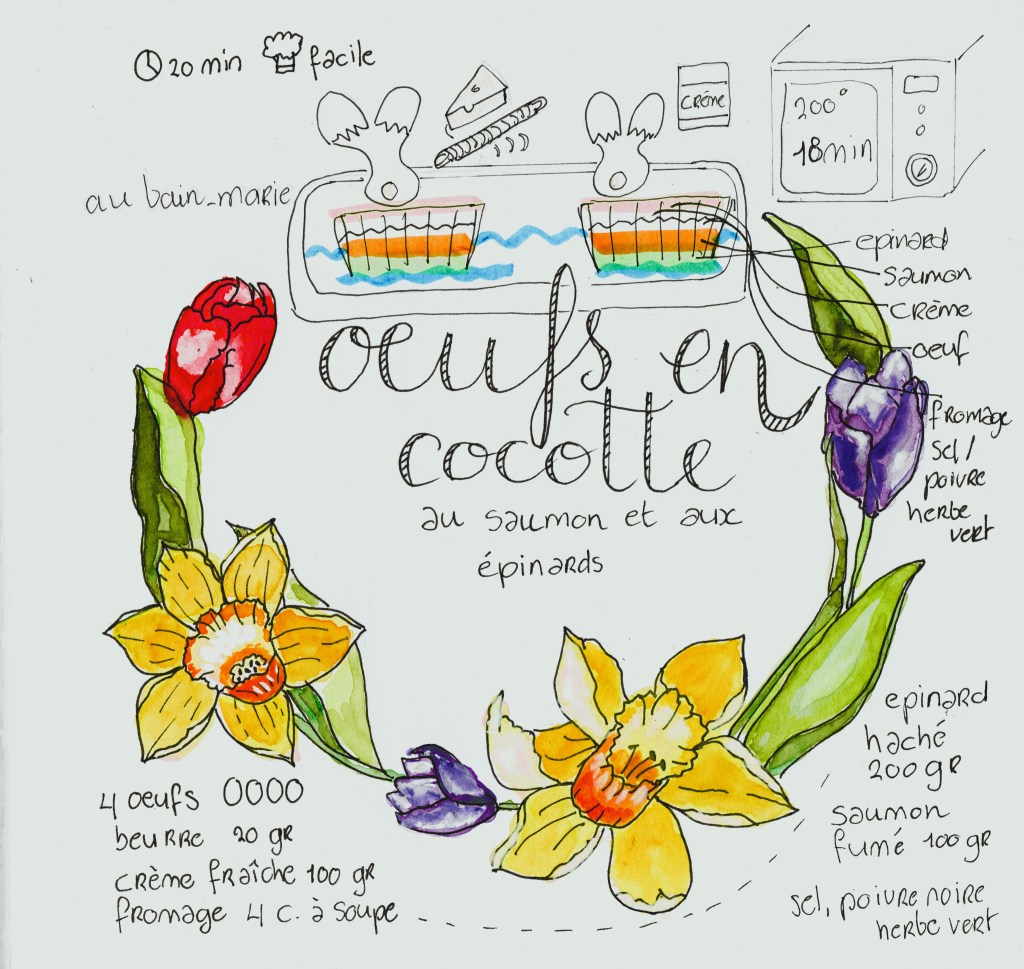 20 min facile
CRÈME
200°
18 min
au bain-marie
epinard
saumon
crème
oeuf
fromage
sel /
poivre
herbe
vert
oeufs en
cocotte
au saumon et aux
épinards
4 oeufs 0000
beurre 20 gr
crème fraîche 100 gr
fromage 4 c. à soupe
epinard
haché
200 gr
saumon
fumé 100 gr
sel, poivre noire
herbe vert